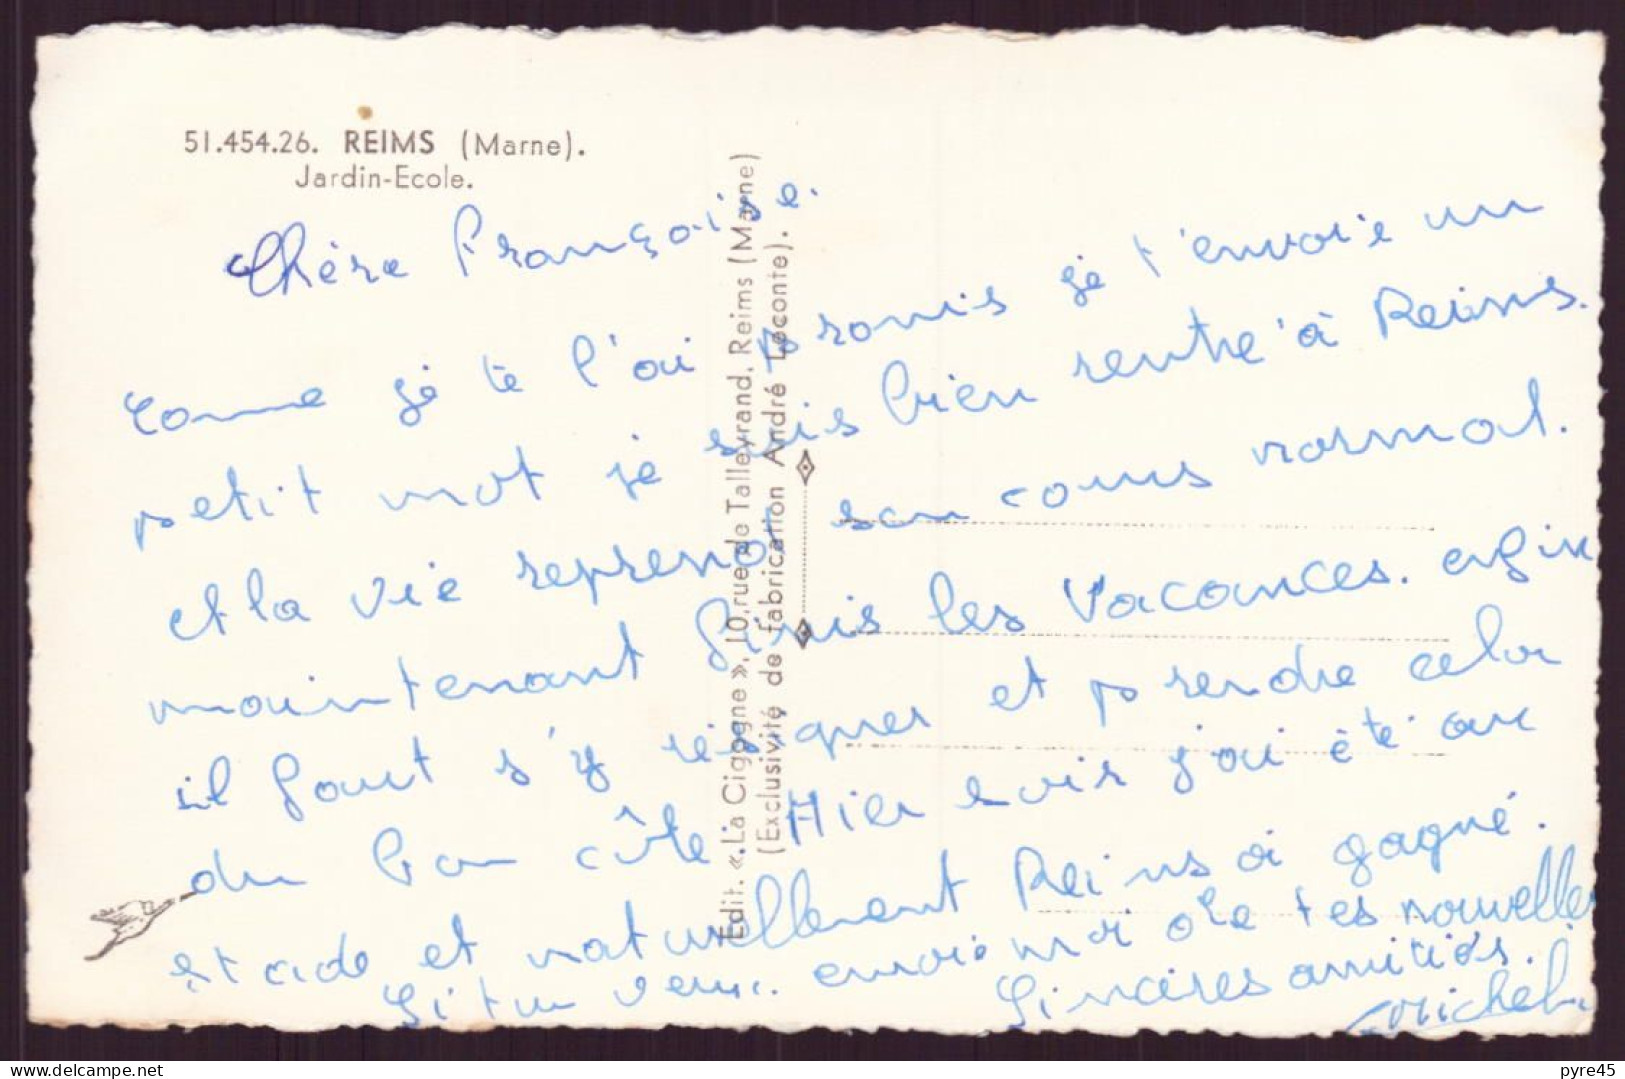 51.454.26. REIMS (Marne).
Jardin-Ecole.
Chère Françoise.
comme je te l'ai promis je t'envoie un
petit mot je suis bien rentré à Reims.
et la vie reprend son cours normal.
maintenant finis les vacances. enfin
il faut s'y résigner et prendre cela
du bon côté. Hier soir j'ai été au
stade et naturellement Reims a gagné.
Si tu veux envoie moi de tes nouvelles
Sincères amitiés.
Michel.
Edit. «La Cigogne», 10, rue de Talleyrand, Reims (Marne)
(Exclusivité de fabrication André Leconte).
pyre45